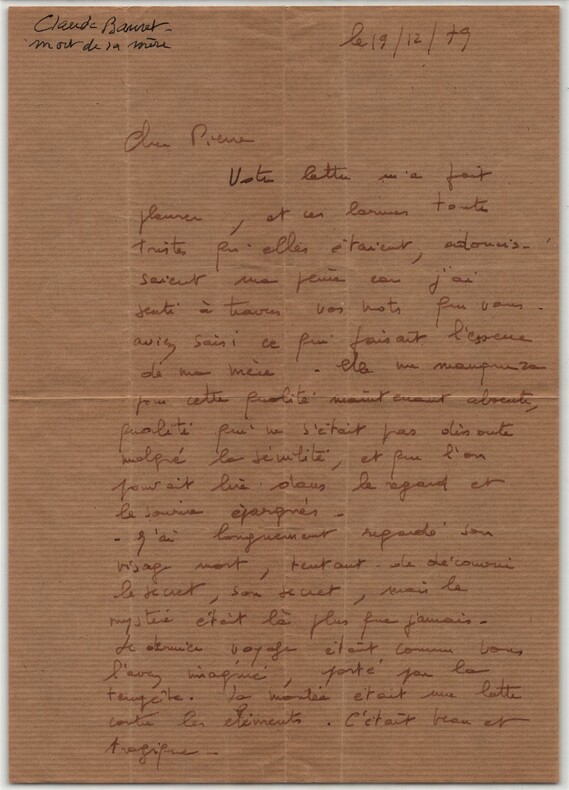 Claude Barret -
mort de sa mère
le 19/12/79
Cher Pierre
Votre lettre m'a fait
pleurer, et ces larmes toute
tristes qu'elles étaient, adoucis-
saient ma peine car j'ai
senti à travers vos mots que vous
aviez saisi ce qui faisait l'essence
de ma mère - Elle me manquera
pour cette qualité maintenant absente,
qualité qui ne s'était pas dissoute
malgré la sénilité, et que l'on
pouvait lire dans le regard et
le sourire épargnés -
- J'ai longuement regardé son
visage mort, tentant de découvrir
le secret, son secret, mais le
mystère était là plus que jamais -
Le dernier voyage était comme vous
l'avez imaginé, porté par la
tempête. La montée était une lutte
contre les éléments. C'était beau et
tragique -